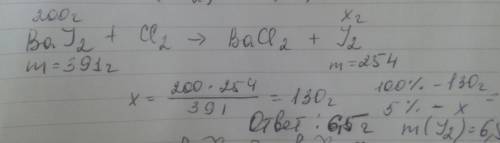 200г xг
BaJ₂ + Cl₂ → BaCl₂ + J₂
m=391г m=254
x = 200·254 / 391 = 130г 100% - 130г =
5% - x
Ответ: 6,5г m(J₂)=6,5